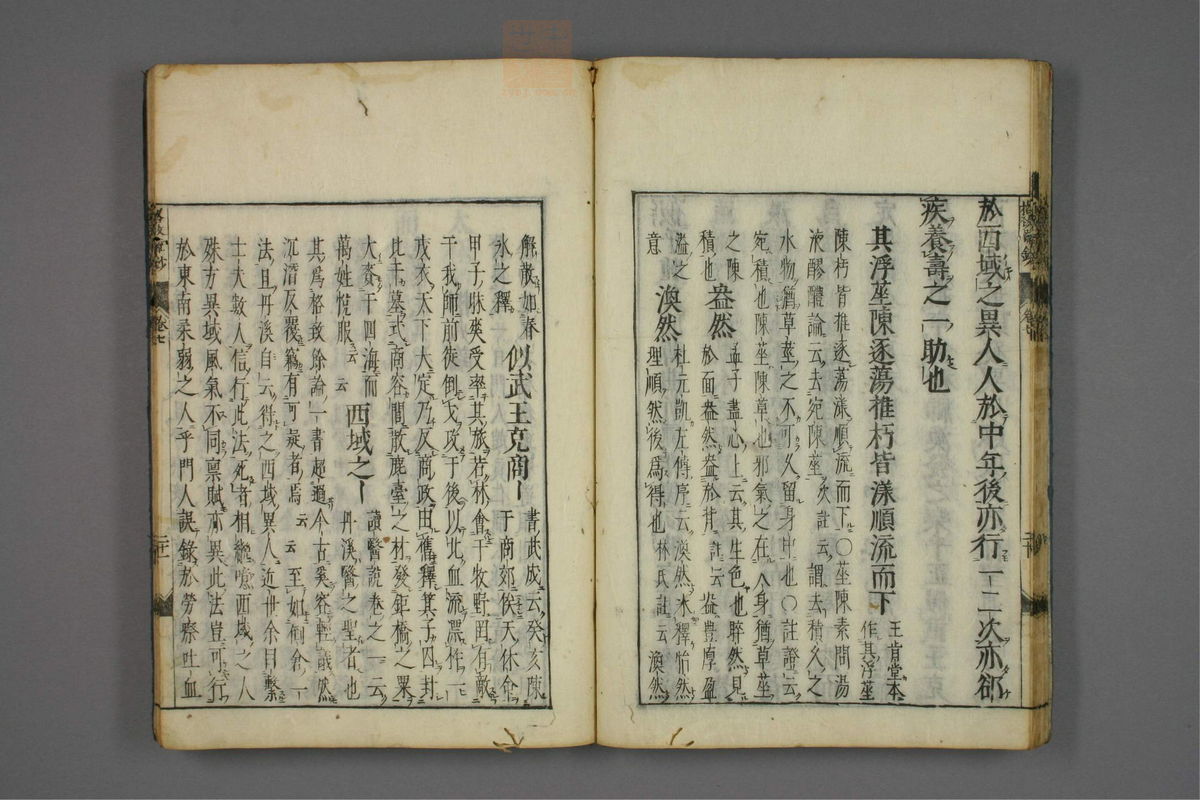 於西域之異人人於中年後亦行一二次亦卻
疾養壽之一助也
其浮莝陳逐蕩推朽皆漾順流而下
王肯堂本
作其浮莝
陳朽皆推逐蕩漾順流而下○莝陳素問湯
液醪醴論云去宛陳莝次註云謂去積久之
水物猶草莝之不可久留身中也○註證云
宛積也陳莝陳草也邪氣之在人身猶草莝
之陳
積也
盎然
孟子盡心上云其生色也睟然見
於面盎然盎於背註云盎豊厚盈
溢之
意
渙然
杜元凱左傳序云渙然氷釋怡然
理順然後爲得也林氏註云渙然
解散如春
氷之釋
似武王克商
書武成云癸亥陳
于商郊俟天休命
甲子昧爽受率其旅若林會于牧野罔有敵
于我師前徒倒戈攻于後以北血流漂杵一
戎衣天下大定乃反商政由舊釋箕子囚封
比干墓式商容閭散鹿臺之材發鉅橋之粟
大賚于四海而
萬姓悅服云云
西域之
讀醫說卷之一云
丹溪醫之聖者也
其爲格致餘論一書超過今古矣容輕議然
沉潛反覆竊有可疑者焉云云至如倒倉一
法且丹溪自云得之西域異人近世余目擊
士大數人信行此法死者相繼噫西域之人
殊方異域風氣不同禀賦亦異此法豈可行
於東南柔弱之人乎門人誤錄於勞瘵吐血